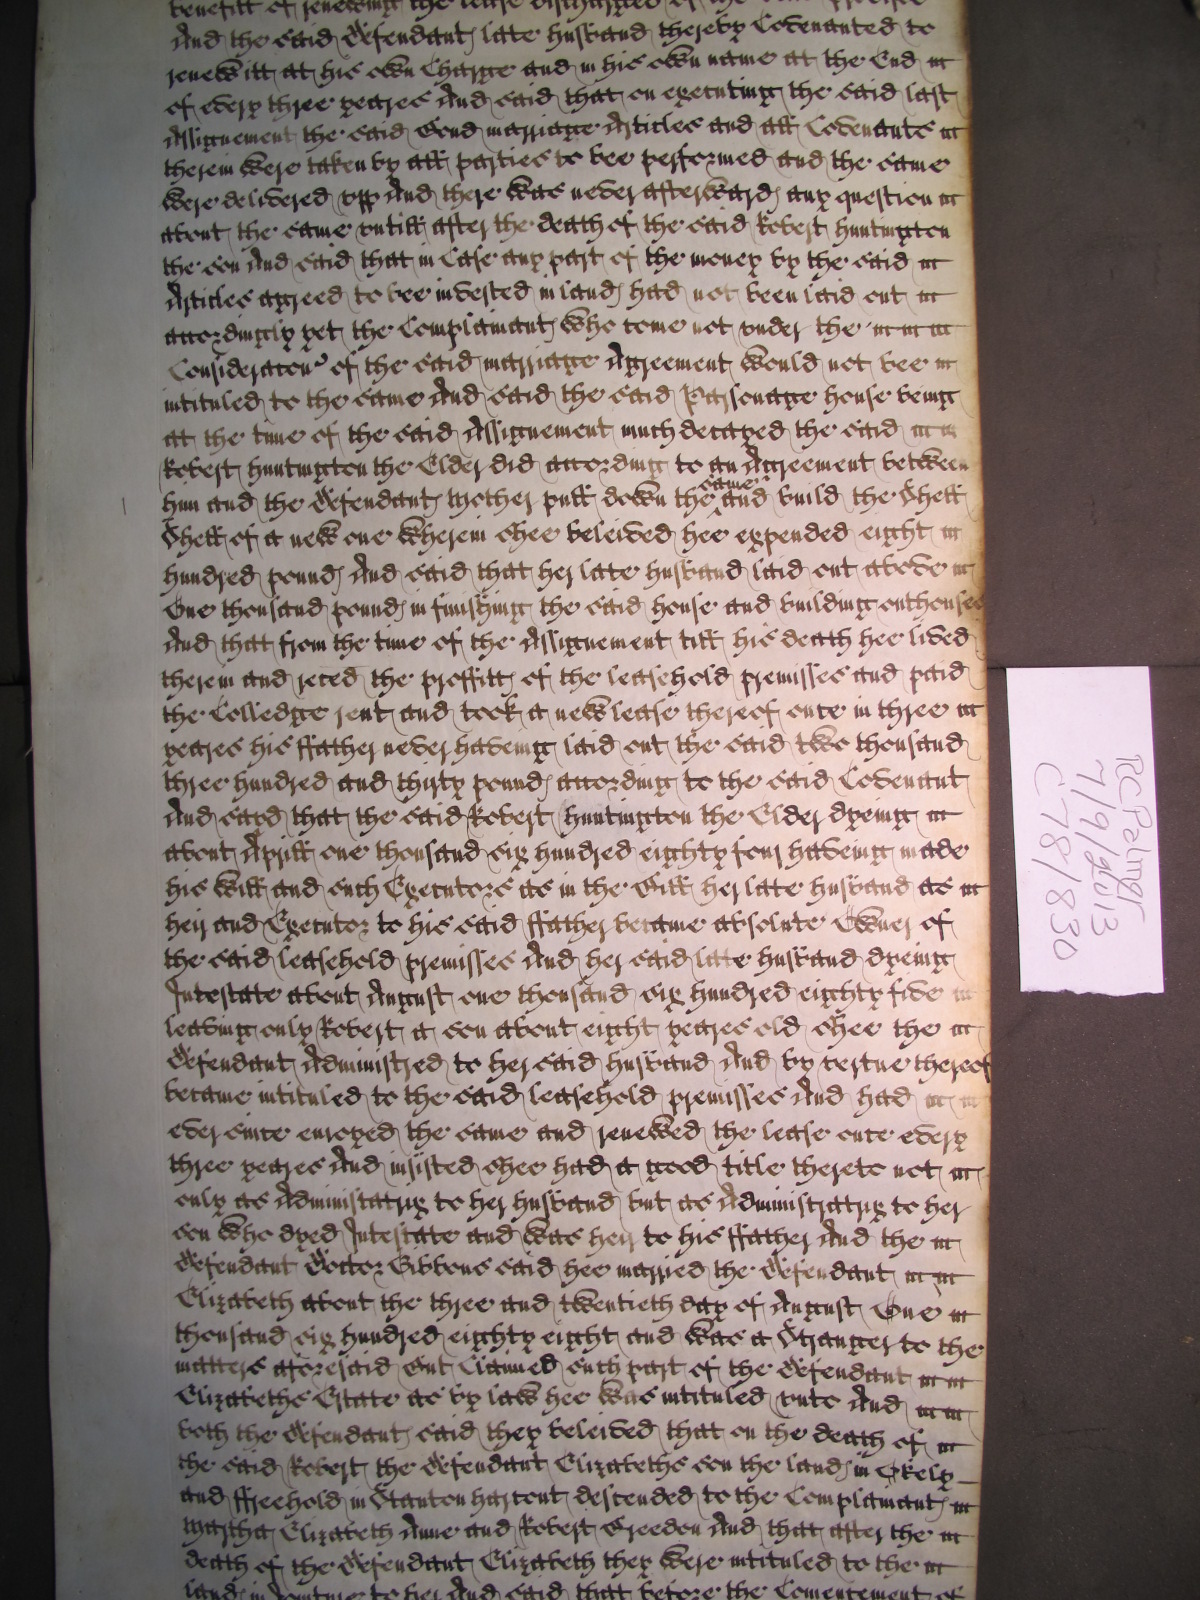 benefitt of renewing the lease discharged of the said
And the said Defendants late husband thereby Covenanted to
renew itt at his own Charge and in his own name at the End
of every three yeares And said that on executing the said last
Assignement the said Bond marriage Articles and all Covenants
therein were taken by all parties to bee performed and the same
were delivered upp And there was never afterwards any question
about the same untill after the death of the said Robert Huntington
the son And said that in Case any part of the money by the said
Articles agreed to bee invested in lands had not been laid out
accordingly yet the Complainants who come not under the
Consideracon of the said marriage Agreement would not bee
intituled to the same And said the said Parsonage house being
at the time of the said Assignement much decayed the said
Robert Huntington the Elder did according to an Agreement between
him and the Defendants mother pull down the same and build the Shell
Shell of a new one wherein shee beleived hee expended eight
hundred pounds And said that her late husband laid out above
One thousand pounds in finishing the said house and building outhouses
And that from the time of the Assignement till his death hee lived
therein and reced the proffitts of the leasehold premisses and paid
the Colledge rent and took a new lease thereof once in three
yeares his ffather never haveing laid out the said two thousand
three hundred and thirty pounds according to the said Covenant
And sayd that the said Robert Huntington the Elder dyeing
about Aprill one thousand six hundred eighty four haveing made
his Will and such Executors as in the Bill her late husband as
heir and Executor to his said ffather became absolute Owner of
the said leasehold premisses And her said late husband dyeing
Intestate about August one thousand six hundred eighty five
leaving only Robert a son about eight yeares old shee the
Defendant Administred to her said husband And by vertue thereof
became intituled to the said leasehold premisses And had
ever since enioyed the same and renewed the lease once every
three yeares And insisted shee had a good title thereto not
only as Administatrix to her husband but as Administratrix to her
son who dyed Intestate and was heir to his ffather And the
Defendant Doctor Gibbons said hee married the Defendant
Elizabeth about the three and twentieth day of August One
thousand six hundred eighty eight and was a Stranger to the
matters aforesaid But Claimed such part of the Defendant
Elizabeths Estate as by law hee was intituled unto And
both the Defendants said they beleived that on the death of
the said Robert the Defendant Elizabeths son the lands in Okely
and ffreehold in Stanton harcout descended to the Complainants
Martha Elizabeth Anne and Robert Greedon And that after the
death of the Defendant Elizabeth they were intituled to the
lands in Joynture to her And said that before the Comencement of
RC Palmer
7/9/2013
C78/830